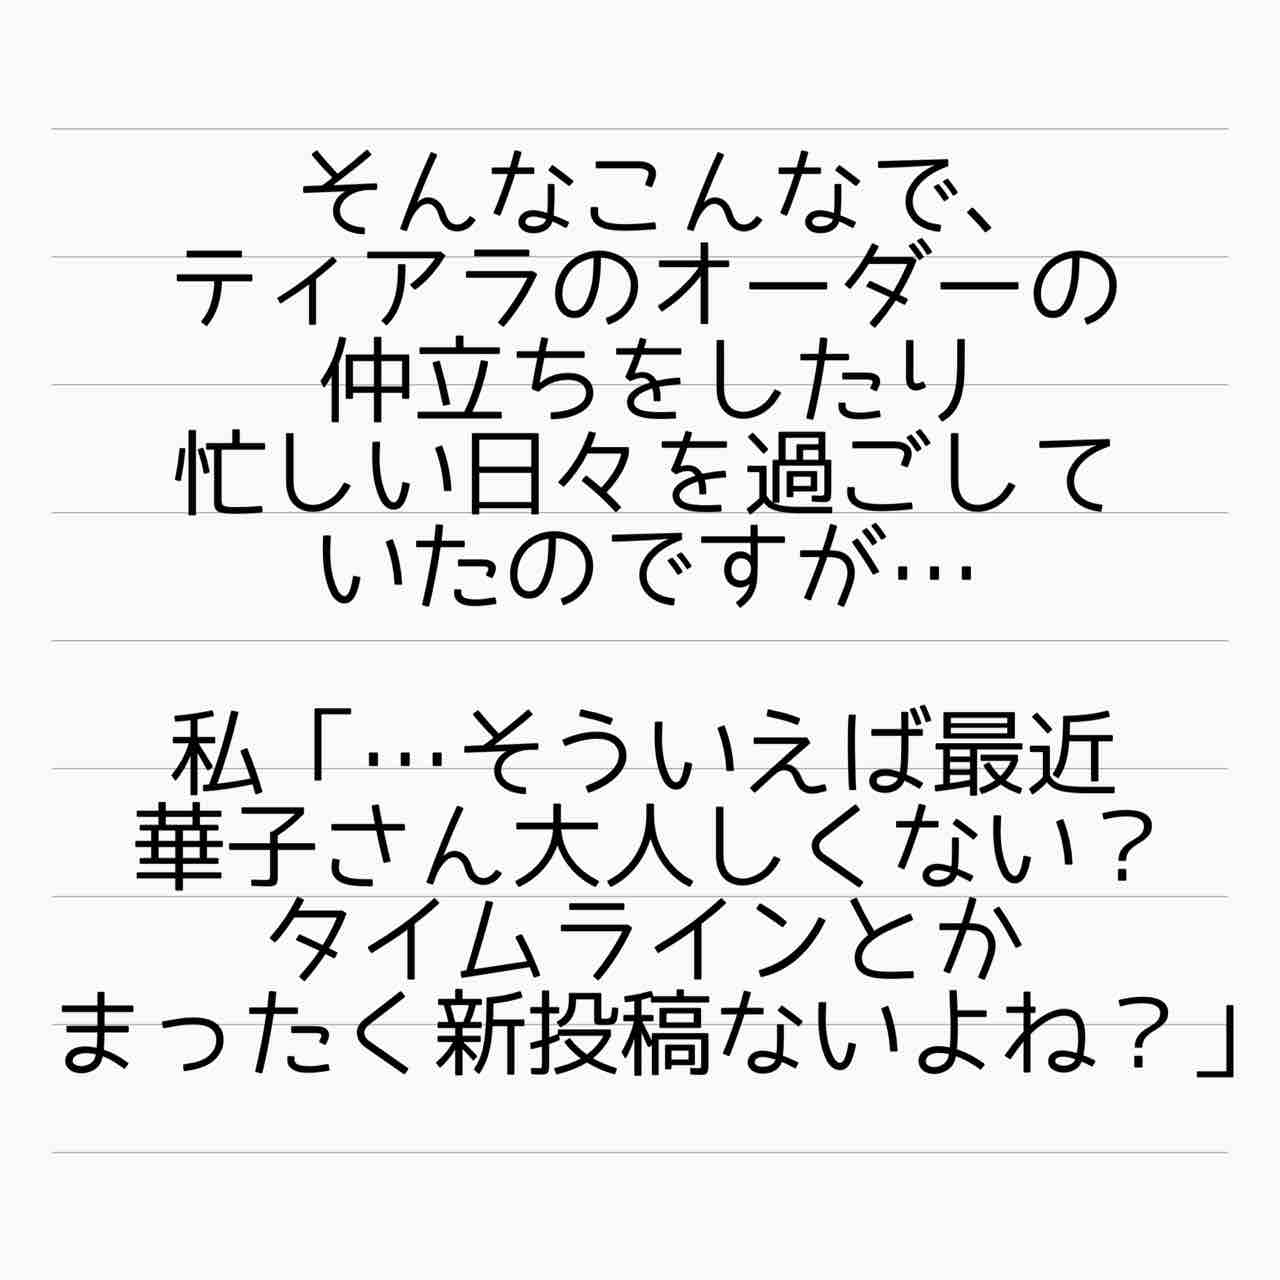 そんなこんなで、
ティアラのオーダーの
仲立ちをしたり
忙しい日々を過ごして
いたのですが…
私「…そういえば最近
華子さん大人しくない？
タイムラインとか
まったく新投稿ないよね？」